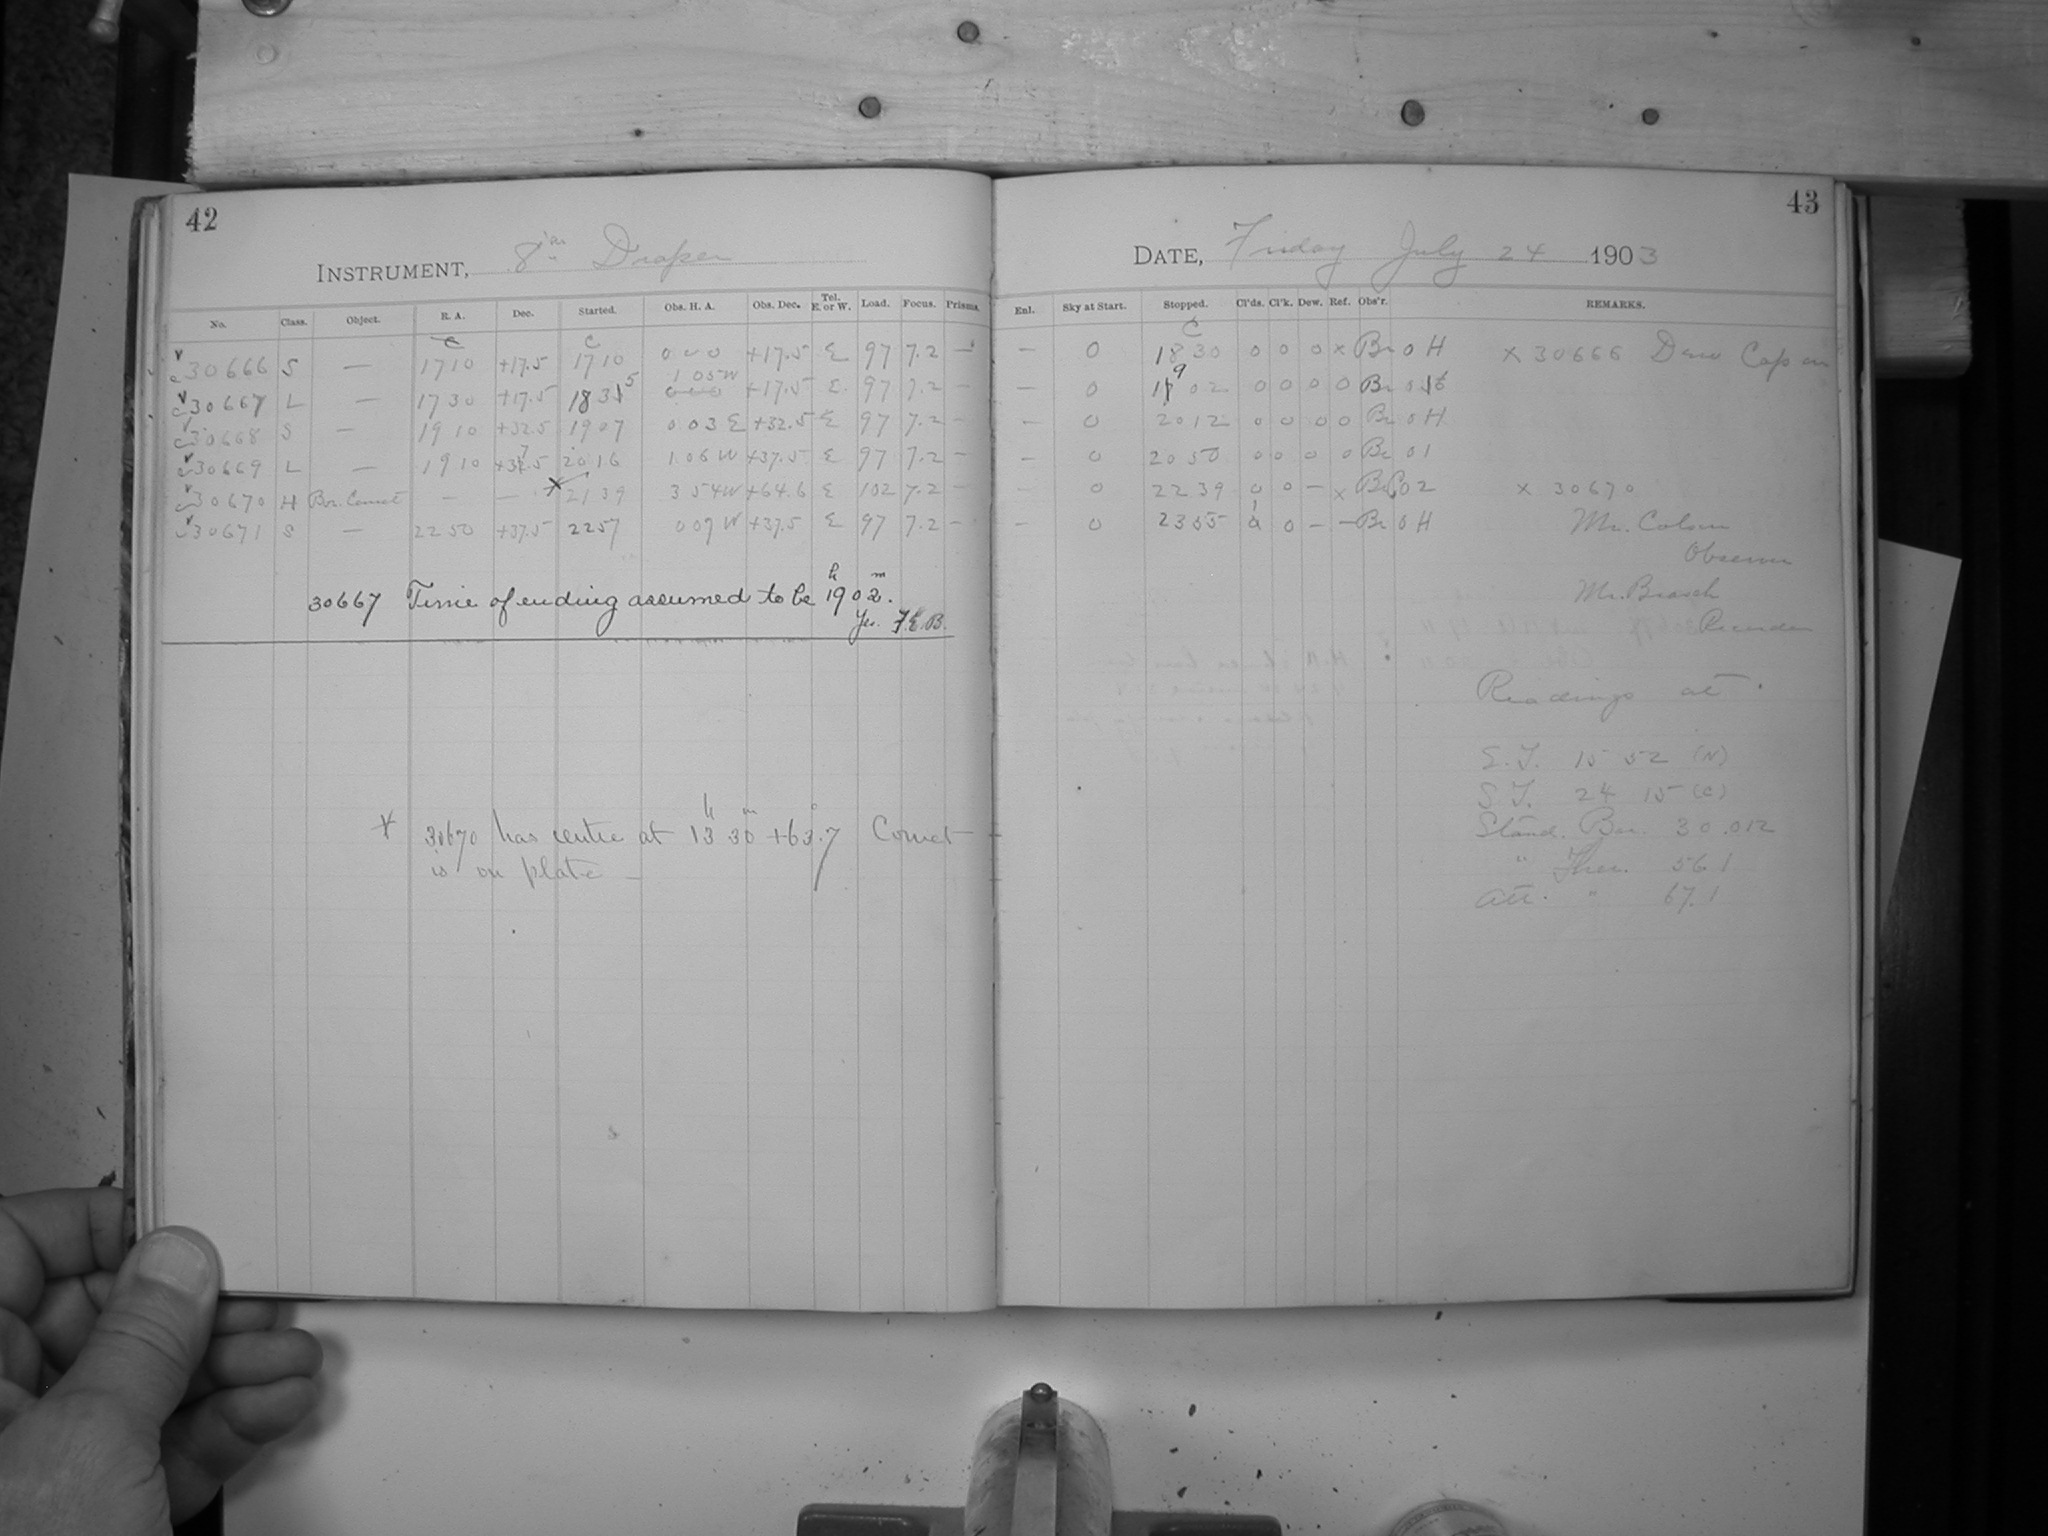 42
INSTRUMENT, 8 in Draper
No. Class. Object. R. A. Dec. Started. Obs. H. A. Obs. Dec. Tel. E. or W. Load. Focus. Prisms.
C C
30666 S — 1710 +17.5 1710 0 00 +17.5 E 97 7.2 —
1 05 W
30667 L — 1730 +17.5 1835 000 +17.5 E. 97 7.2 —
30668 S — 1910 +32.5 1907 0 03 E +32.5 E 97 7.2 —
30669 L — 1910 +37.5 2016 1.06 W +37.5 E 97 7.2 —
30670 H Bor. Comet — — x 2139 3 54 W +64.6 E 102 7.2 —
30671 S — 2250 +37.5 2257 0 07 W +37.5 E 97 7.2 —
30667 Time of ending assumed to be 19h 02m.
Yes. F.E.B.
x 30670 has centre at 13h 30m +63°.7 Comet
is on plate —
43
DATE, Friday July 24 1903
Enl. Sky at Start. Stopped. Cl'ds. Cl'k. Dew. Ref. Obs'r. REMARKS.
C
— 0 1830 0 0 0 x Br 0 H x 30666 Dew Cap on
— 0 1902 0 0 0 0 Br
— 0 2012 0 0 0 0 Br 0 H
— 0 2050 0 0 0 0 Br 01
— 0 2239 0 0 — x Br 02 x 30670
— 0 2355 0 — — Br 0 H Mr. Colson
Observer
Mr. Brasch
Recorder
Readings at
S.T. 15 52 (N)
S.T. 24 15 (C)
Stand. Bar. 30.012
" Ther. 56.1
Att. " 67.1